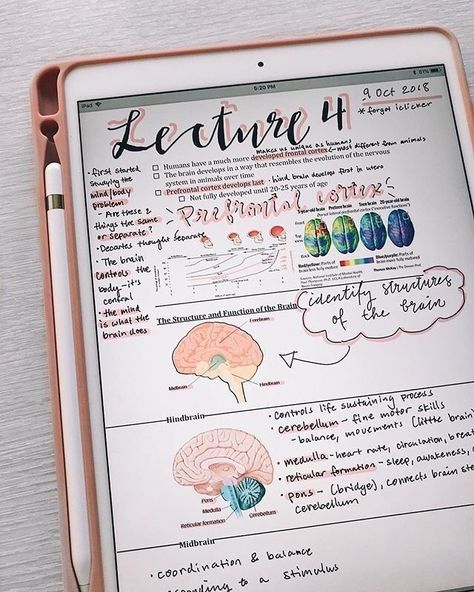 iPad
5:20 PM
81%
Lecture 4
9 Oct 2018
* forgot iclicker
makes us unique as humans
Humans have a much more developed frontal cortex ← most different from animals
The brain develops in a way that resembles the evolution of the nervous
system in animals over time
· hind brain develops first in utero
Prefrontal cortex develops last
Not fully developed until 20-25 years of age
Prefrontal cortex
· first started
studying the
mind/body
problem
- Are these 2
things the same
or separate?
· Decartes thought separate
· The brain
controls the
body - it's
central
· the mind
is what the
brain does
5-year-old brain
Preteen brain
Teen brain
20-year-old brain
Red/yellow: Parts of
brain less fully mature
Blue/purple: Parts of
identify structures
of the brain
The Structure and Function of the Brain
Cerebrum
Midbrain
Hindbrain
Hindbrain
· controls life sustaining process
· cerebellum - fine motor skills
- balance, movements (little brain
· medulla - heart rate, circulation, breat
· reticular formation - sleep, awareness,
· pons - (bridge), connects brain ste
cerebellum
Pons
Medulla
Reticular formation
Cerebellum
Midbrain
· coordination & balance
according to a stimulus